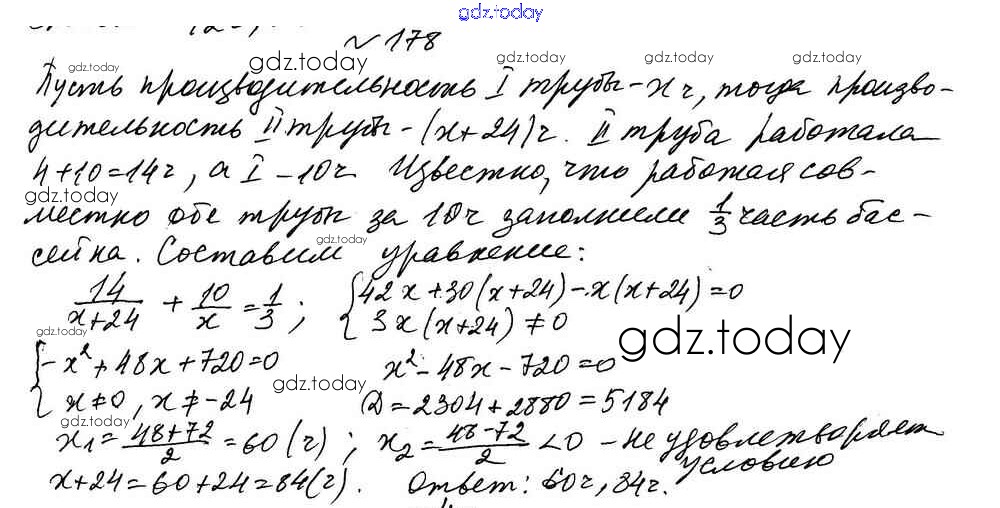 gdz.today
№178
gdz.today gdz.today gdz.today gdz.today
Пусть производительность I трубы - x ч, тогда произво-
дительность II трубы - (x+24) ч. II труба работала
4+10=14ч, а I - 10ч. Известно, что работая сов-
gdz.today
местно обе трубы за 10ч заполнили 1/3 часть бас-
gdz.today
сейна. Составим уравнение:
14/(x+24) + 10/x = 1/3 ; { 42x+30(x+24)-x(x+24)=0
3x(x+24)≠0
gdz.today gdz.today
{ -x²+48x+720=0 x²-48x-720=0
x≠0, x≠-24 D=2304+2880=5184
gdz.today
gdz.today
x₁=(48+72)/2=60(ч); x₂=(48-72)/2<0 - не удовлетворяет
условию
x+24=60+24=84(ч). Ответ: 60ч, 84ч.